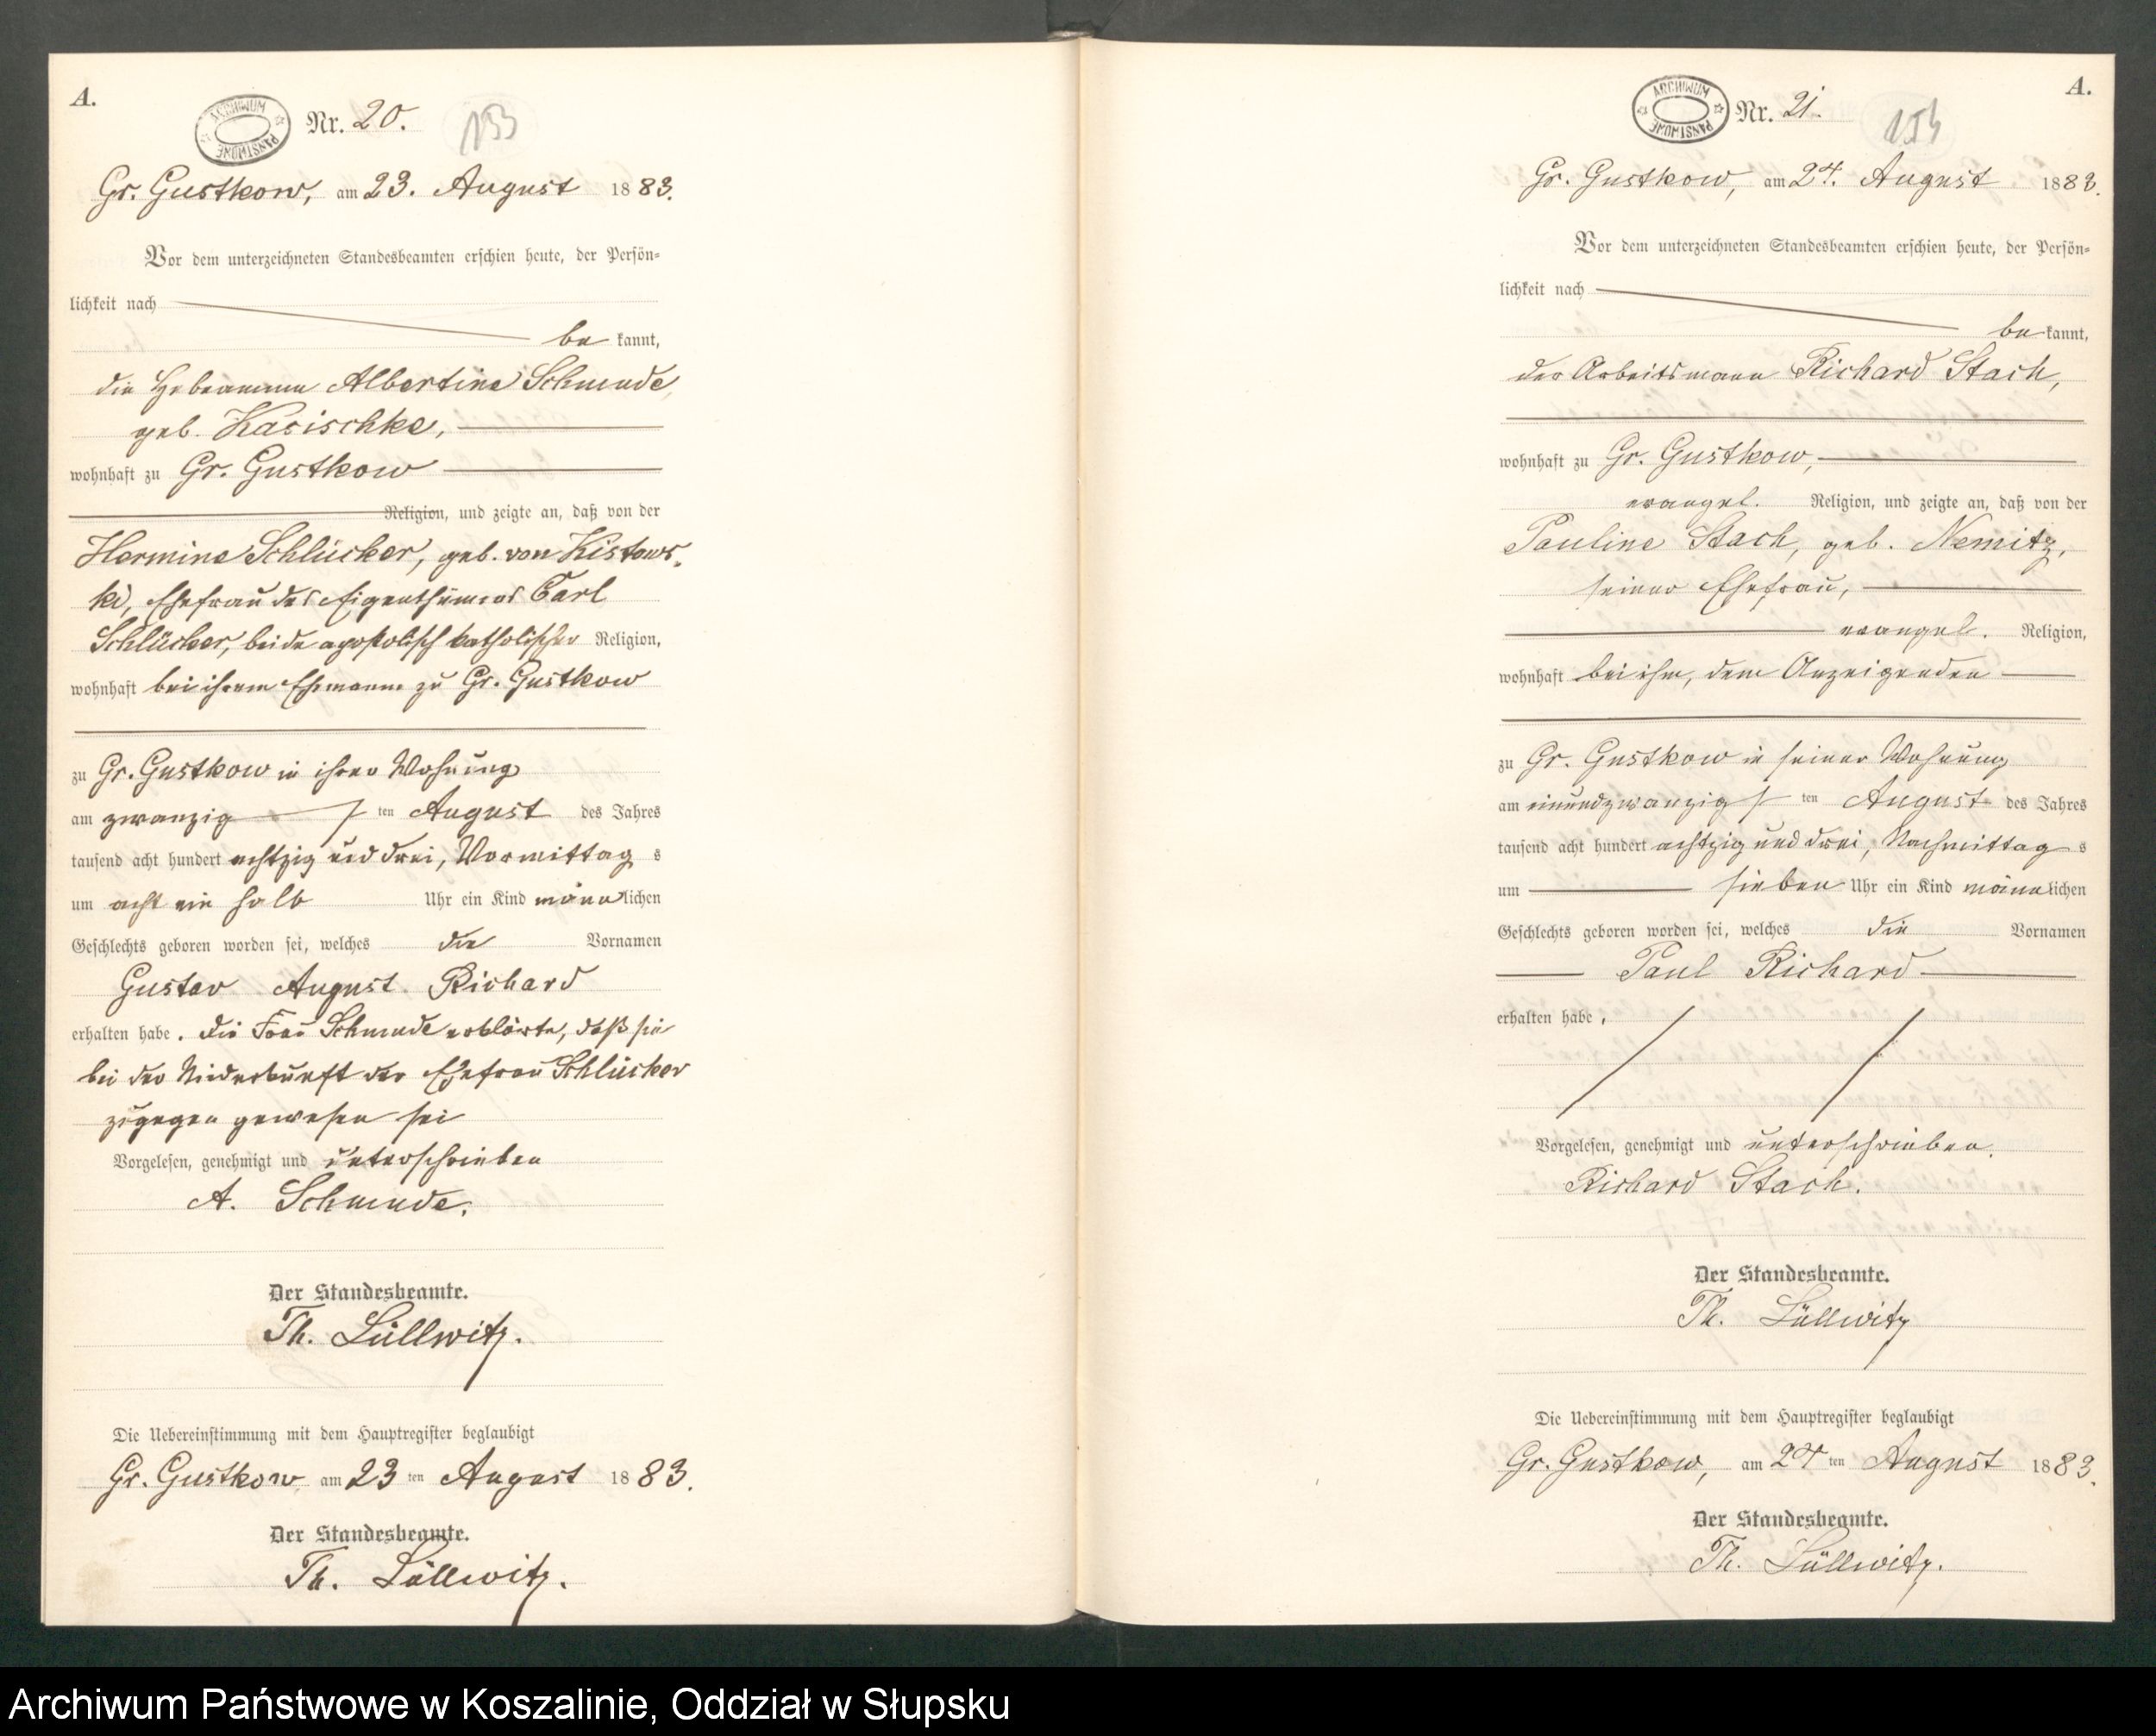 A.
ARCHIWUM PAŃSTWOWE
Nr. 20.
153
Gr. Gustkow, am 23. August 1883.
Vor dem unterzeichneten Standesbeamten erschien heute, der Persön-
lichkeit nach
be kannt,
die Hebeamme Albertine Schmude,
geb. Kasischke,
wohnhaft zu Gr. Gustkow
Religion, und zeigte an, daß von der
Hermine Schlücker, geb. von Kistows-
ki, Ehefrau des Eigenthümers Carl
Schlücker, beide apostolisch katholischer Religion,
wohnhaft bei ihrem Ehemanne zu Gr. Gustkow
zu Gr. Gustkow in ihrer Wohnung
am zwanzig ten August des Jahres
tausend acht hundert achtzig und drei, Vormittag s
um acht ein halb Uhr ein Kind männlichen
Geschlechts geboren worden sei, welches die Vornamen
Gustav August Richard
erhalten habe. Die Frau Schmude erklärte, daß sie
bei der Niederkunft der Ehefrau Schlücker
zugegen gewesen sei
Vorgelesen, genehmigt und unterschrieben
A. Schmude.
Der Standesbeamte.
Th. Lüllwitz.
Die Uebereinstimmung mit dem Hauptregister beglaubigt
Gr. Gustkow am 23 ten August 1883.
Der Standesbeamte.
Th. Lüllwitz.
A.
ARCHIWUM PAŃSTWOWE
Nr. 21.
154
Gr. Gustkow, am 24. August 1883.
Vor dem unterzeichneten Standesbeamten erschien heute, der Persön-
lichkeit nach
be kannt,
der Arbeitsmann Richard Stach,
wohnhaft zu Gr. Gustkow,
evangel. Religion, und zeigte an, daß von der
Pauline Stach, geb. Nemitz,
seiner Ehefrau,
evangel. Religion,
wohnhaft bei ihm, dem Anzeigenden
zu Gr. Gustkow in seiner Wohnung
am einundzwanzig ten August des Jahres
tausend acht hundert achtzig und drei, Nachmittag s
um sieben Uhr ein Kind männlichen
Geschlechts geboren worden sei, welches die Vornamen
Paul Richard
erhalten habe.
Vorgelesen, genehmigt und unterschrieben.
Richard Stach.
Der Standesbeamte.
Th. Lüllwitz
Die Uebereinstimmung mit dem Hauptregister beglaubigt
Gr. Gustkow, am 24 ten August 1883.
Der Standesbeamte.
Th. Lüllwitz.
Archiwum Państwowe w Koszalinie, Oddział w Słupsku